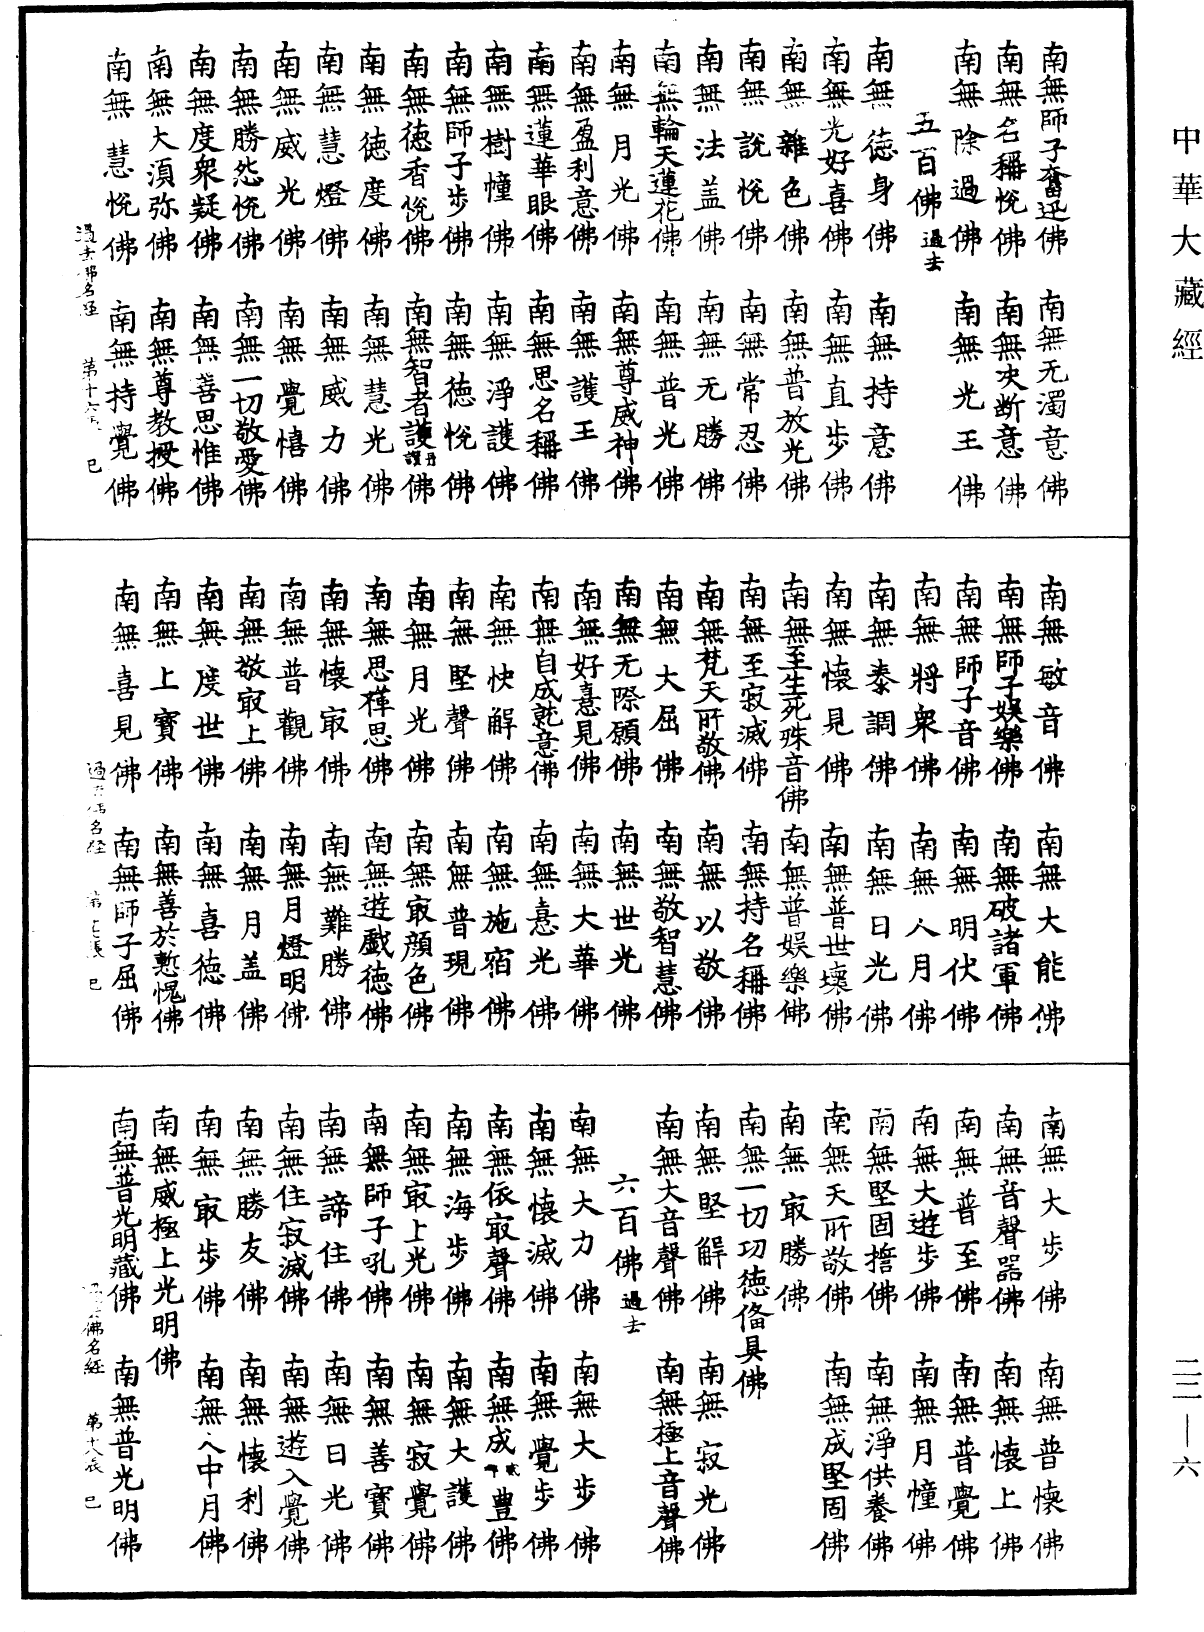 中華大藏經
南無師子奮迅佛 南無无濁意佛
南無名稱悅佛 南無决断意佛
南無除過佛 南無光王佛
五百佛 過去
南無德身佛 南無持意佛
南無光好喜佛 南無直步佛
南無雜色佛 南無普放光佛
南無說悅佛 南無常忍佛
南無法盖佛 南無无勝佛
南無輪天蓮花佛 南無普光佛
南無月光佛 南無尊威神佛
南無盈利意佛 南無護王佛
南無蓮華眼佛 南無思名稱佛
南無樹幢佛 南無淨護佛
南無師子步佛 南無德悅佛
南無德香悅佛 南無智者護佛
南無德度佛 南無慧光佛
南無慧燈佛 南無威力佛
南無威光佛 南無覺憘佛
南無勝怨悅佛 南無一切敬愛佛
南無度衆疑佛 南無善思惟佛
南無大湏弥佛 南無尊教授佛
南無慧悅佛 南無持覺佛
過去佛名經 第十六張 巳
南無敏音佛 南無大能佛
南無師子娛樂佛 南無破諸軍佛
南無師子音佛 南無明伏佛
南無將衆佛 南無人月佛
南無泰調佛 南無日光佛
南無懷見佛 南無普世壞佛
南無至生死殊音佛 南無普娛樂佛
南無至寂滅佛 南無持名稱佛
南無梵天所敬佛 南無以敬佛
南無大屈佛 南無敬智慧佛
南無无際願佛 南無世光佛
南無好憙見佛 南無大華佛
南無自成就意佛 南無憙光佛
南無快解佛 南無施宿佛
南無堅聲佛 南無普現佛
南無月光佛 南無㝡顔色佛
南無思禅思佛 南無遊戲德佛
南無懷㝡佛 南無難勝佛
南無普觀佛 南無月燈明佛
南無敬㝡上佛 南無月盖佛
南無度世佛 南無喜德佛
南無上寶佛 南無善於慙愧佛
南無喜見佛 南無師子屈佛
過去佛名經 第十七張 巳
南無大步佛 南無普懷佛
南無音聲器佛 南無懷上佛
南無普至佛 南無普覺佛
南無大遊步佛 南無月幢佛
南無堅固擔佛 南無淨供養佛
南無天所敬佛 南無成堅固佛
南無㝡勝佛
南無一切功德俻具佛
南無堅解佛 南無寂光佛
南無大音聲佛 南無極上音聲佛
六百佛 過去
南無大力佛 南無大步佛
南無懷滅佛 南無覺步佛
南無依㝡聲佛 南無成豊佛
南無海步佛 南無大護佛
南無㝡上光佛 南無寂覺佛
南無師子吼佛 南無善寶佛
南無諦住佛 南無日光佛
南無住寂滅佛 南無遊入覺佛
南無勝友佛 南無懷利佛
南無㝡步佛 南無人中月佛
南無威極上光明佛
南無普光明藏佛 南無普光明佛
過去佛名經 第十八張 巳
二二—六